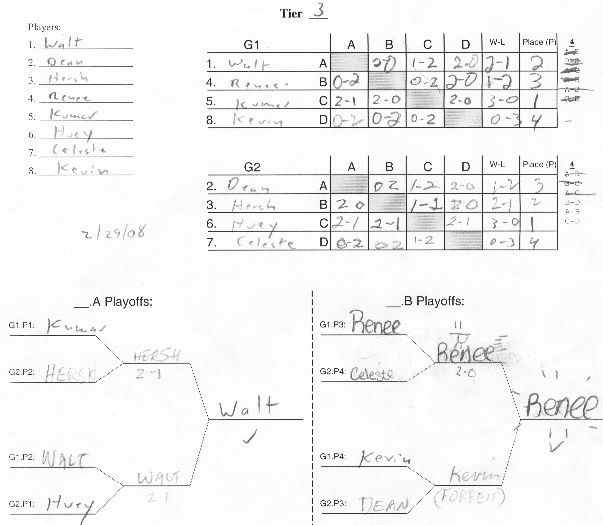 Tier 3
Players:
1. Walt
2. Dean
3. Hersh
4. Renee
5. Kumar
6. Huey
7. Celiste
8. Kevin
2/29/08
G1 A B C D W-L Place (P) 4
1. Walt A 2-0 1-2 2-0 2-1 2
4. Renee B 0-2 0-2 2-0 1-2 3
5. Kumar C 2-1 2-0 2-0 3-0 1
8. Kevin D 0-2 0-2 0-2 0-3 4
G2 A B C D W-L Place (P) 4
2. Dean A 0 2 1-2 2-0 1-2 3
3. Hersh B 2 0 1-2 2 0 2-1 2
6. Huey C 2-1 2-1 2-1 3-0 1
7. Celeste D 0-2 0 2 1-2 0-3 4
__.A Playoffs:
G1.P1: Kumar
HERSH
2-1
G2.P2: HERSH
Walt
G1.P2: WALT
WALT
2-1
G2.P1: Huey
__.B Playoffs:
G1.P3: Renee
Renee
2-0
G2.P4: Celeste
Renee
G1.P4: Kevin
Kevin
(FORFEIT)
G2.P3: DEAN